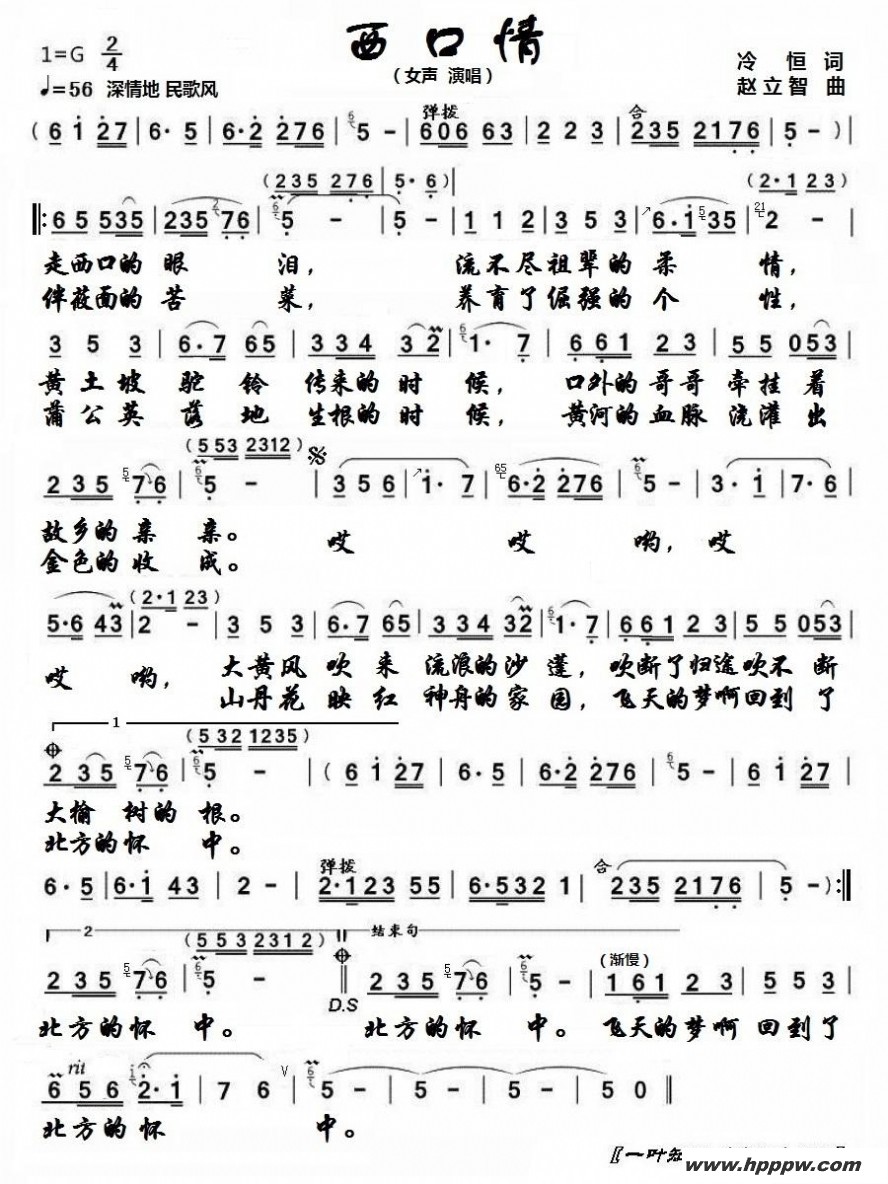 西口情
1=G 2/4
（女声 演唱）
冷 恒 词
♩=56 深情地 民歌风
赵立智 曲
弹拨 合
( 6 i 27 | 6· 5 | 6·2 276 | 5 - | 606 63 | 2 2 3 | 235 2176 | 5 - ) |
(235 276 | 5· 6) (2·1 23)
‖: 65 535 | 235 76 | 5 - | 5 - | 1 1 2 | 3 5 3 | 6·i 35 | 2 - |
走西口的 眼 泪， 流不尽祖辈的柔 情，
伴莜面的 苦 菜， 养育了倔强的个 性，
3 5 3 | 6·7 65 | 3 3 4 3 2 | 1· 7 | 6 6 1 2 3 | 5 5 053 |
黄土坡 驼 铃 传来的时 候， 口外的哥哥 牵挂 着
蒲公英 落 地 生根的时 候， 黄河的血脉 浇灌 出
(5 53 2312)
2 3 5 7·6 | 5 - | 3 5 6 | i· 7 | 6·2 276 | 5 - | 3· i | 7· 6 |
故乡的 亲 亲。 哎 哎 哟， 哎
金色的 收 成。
(2·1 23)
5·6 43 | 2 - | 3 5 3 | 6·7 65 | 3 3 4 32 | 1· 7 | 6 6 1 2 3 | 5 5 053 |
哎 哟， 大黄风 吹 来 流浪的沙 蓬， 吹断了归途吹不 断
山丹花 映 红 神舟的家 园， 飞天的梦啊回到 了
1 (5 32 1235)
2 3 5 7·6 | 5 - | ( 6 i 27 | 6· 5 | 6·2 276 | 5 - | 6 i 27 |
大榆 树的 根。
北方的怀 中。
弹拨 合
6· 5 | 6·i 43 | 2 - | 2·123 55 | 6·532 1 | 235 2176 | 5 - ) :‖
2 (5 5 3 231 2) 结束句
(渐慢)
2 3 5 7·6 | 5 - ‖ 2 3 5 7·6 | 5 - | 1 6 1 2 3 | 5 5 053 |
D.S
北方的怀 中。 北方的怀 中。 飞天的梦啊 回到了
rit
6 5 6 2·i | 7 6 | 5 - | 5 - | 5 - | 5 0 ‖
北方的怀 中。
〖一叶
www.hpppw.com